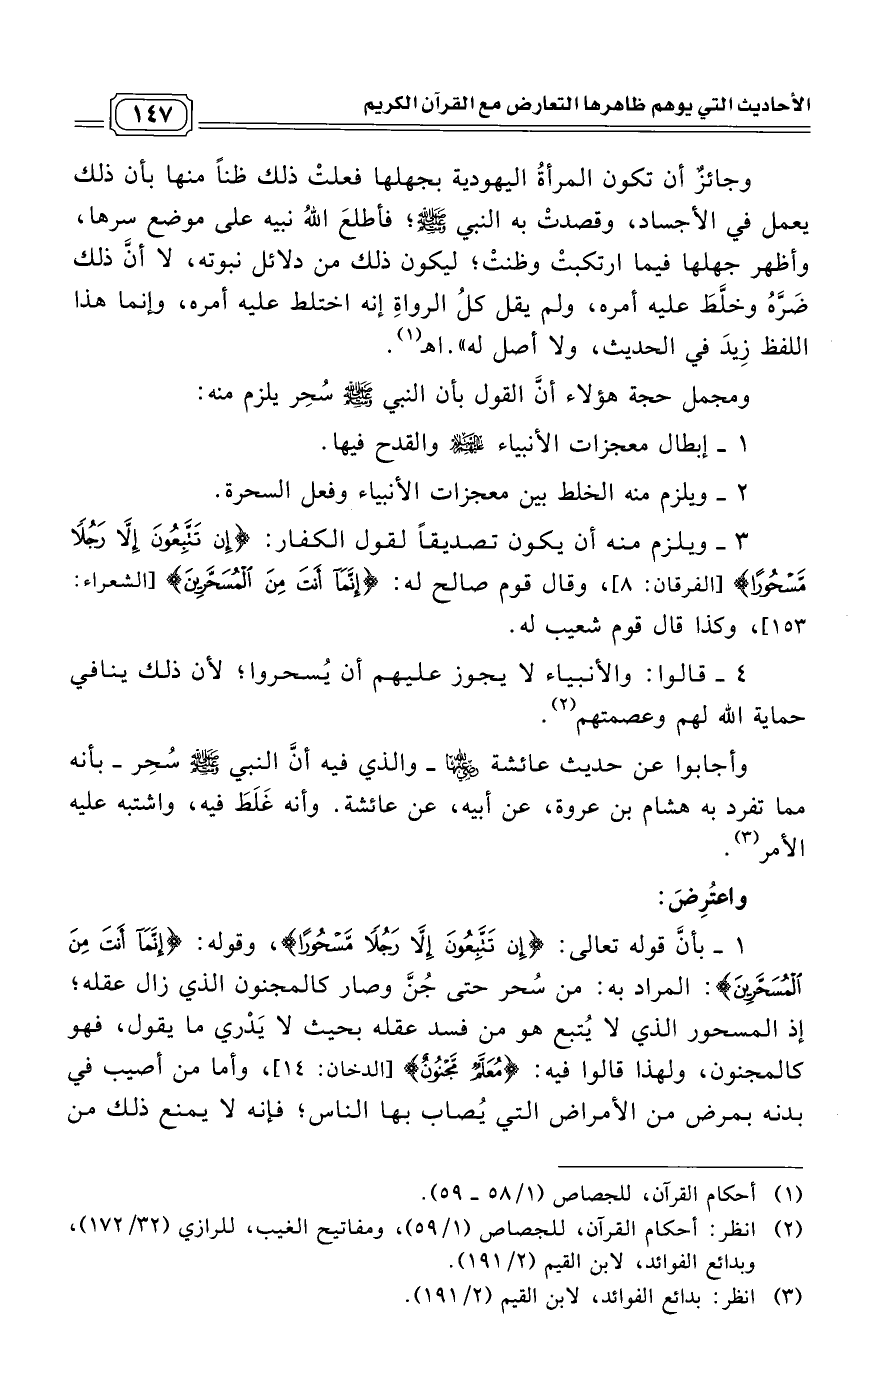 الأحاديث التي يوهم ظاهرها التعارض مع القرآن الكريم
١٤٧
وجائزٌ أن تكون المرأةُ اليهودية بجهلها فعلتْ ذلك ظناً منها بأن ذلك
يعمل في الأجساد، وقصدتْ به النبي ﷺ؛ فأطلعَ اللهُ نبيه على موضع سرها،
وأظهر جهلها فيما ارتكبتْ وظنتْ؛ ليكون ذلك من دلائل نبوته، لا أنَّ ذلك
ضَرَّهُ وخلَّطَ عليه أمره، ولم يقل كلُ الرواةِ إنه اختلط عليه أمره، وإنما هذا
اللفظ زِيدَ في الحديث، ولا أصل له».اهـ(١).
ومجمل حجة هؤلاء أنَّ القول بأن النبي ﷺ سُحِر يلزم منه:
١ ـ إبطال معجزات الأنبياء عليهم السلام والقدح فيها.
٢ ـ ويلزم منه الخلط بين معجزات الأنبياء وفعل السحرة.
٣ ـ ويلزم منه أن يكون تصديقاً لقول الكفار: ﴿إِن تَتَّبِعُونَ إِلَّا رَجُلًا
مَّسْحُورًا﴾ [الفرقان: ٨]، وقال قوم صالح له: ﴿إِنَّمَآ أَنتَ مِنَ ٱلْمُسَحَّرِينَ﴾ [الشعراء:
١٥٣]، وكذا قال قوم شعيب له.
٤ ـ قالوا: والأنبياء لا يجوز عليهم أن يُسحروا؛ لأن ذلك ينافي
حماية الله لهم وعصمتهم(٢).
وأجابوا عن حديث عائشة رضي الله عنها ـ والذي فيه أنَّ النبي ﷺ سُحِر ـ بأنه
مما تفرد به هشام بن عروة، عن أبيه، عن عائشة. وأنه غَلَطَ فيه، واشتبه عليه
الأمر(٣).
واعتُرِضَ:
١ ـ بأنَّ قوله تعالى: ﴿إِن تَتَّبِعُونَ إِلَّا رَجُلًا مَّسْحُورًا﴾، وقوله: ﴿إِنَّمَآ أَنتَ مِنَ
ٱلْمُسَحَّرِينَ﴾: المراد به: من سُحر حتى جُنَّ وصار كالمجنون الذي زال عقله؛
إذ المسحور الذي لا يُتبع هو من فسد عقله بحيث لا يَدْري ما يقول، فهو
كالمجنون، ولهذا قالوا فيه: ﴿مُعَلَّمٌ مَّجْنُونٌ﴾ [الدخان: ١٤]، وأما من أصيب في
بدنه بمرض من الأمراض التي يُصاب بها الناس؛ فإنه لا يمنع ذلك من
(١) أحكام القرآن، للجصاص (١/ ٥٨ ـ ٥٩).
(٢) انظر: أحكام القرآن، للجصاص (١/ ٥٩)، ومفاتيح الغيب، للرازي (٣٢/ ١٧٢)،
وبدائع الفوائد، لابن القيم (٢/ ١٩١).
(٣) انظر: بدائع الفوائد، لابن القيم (٢/ ١٩١).